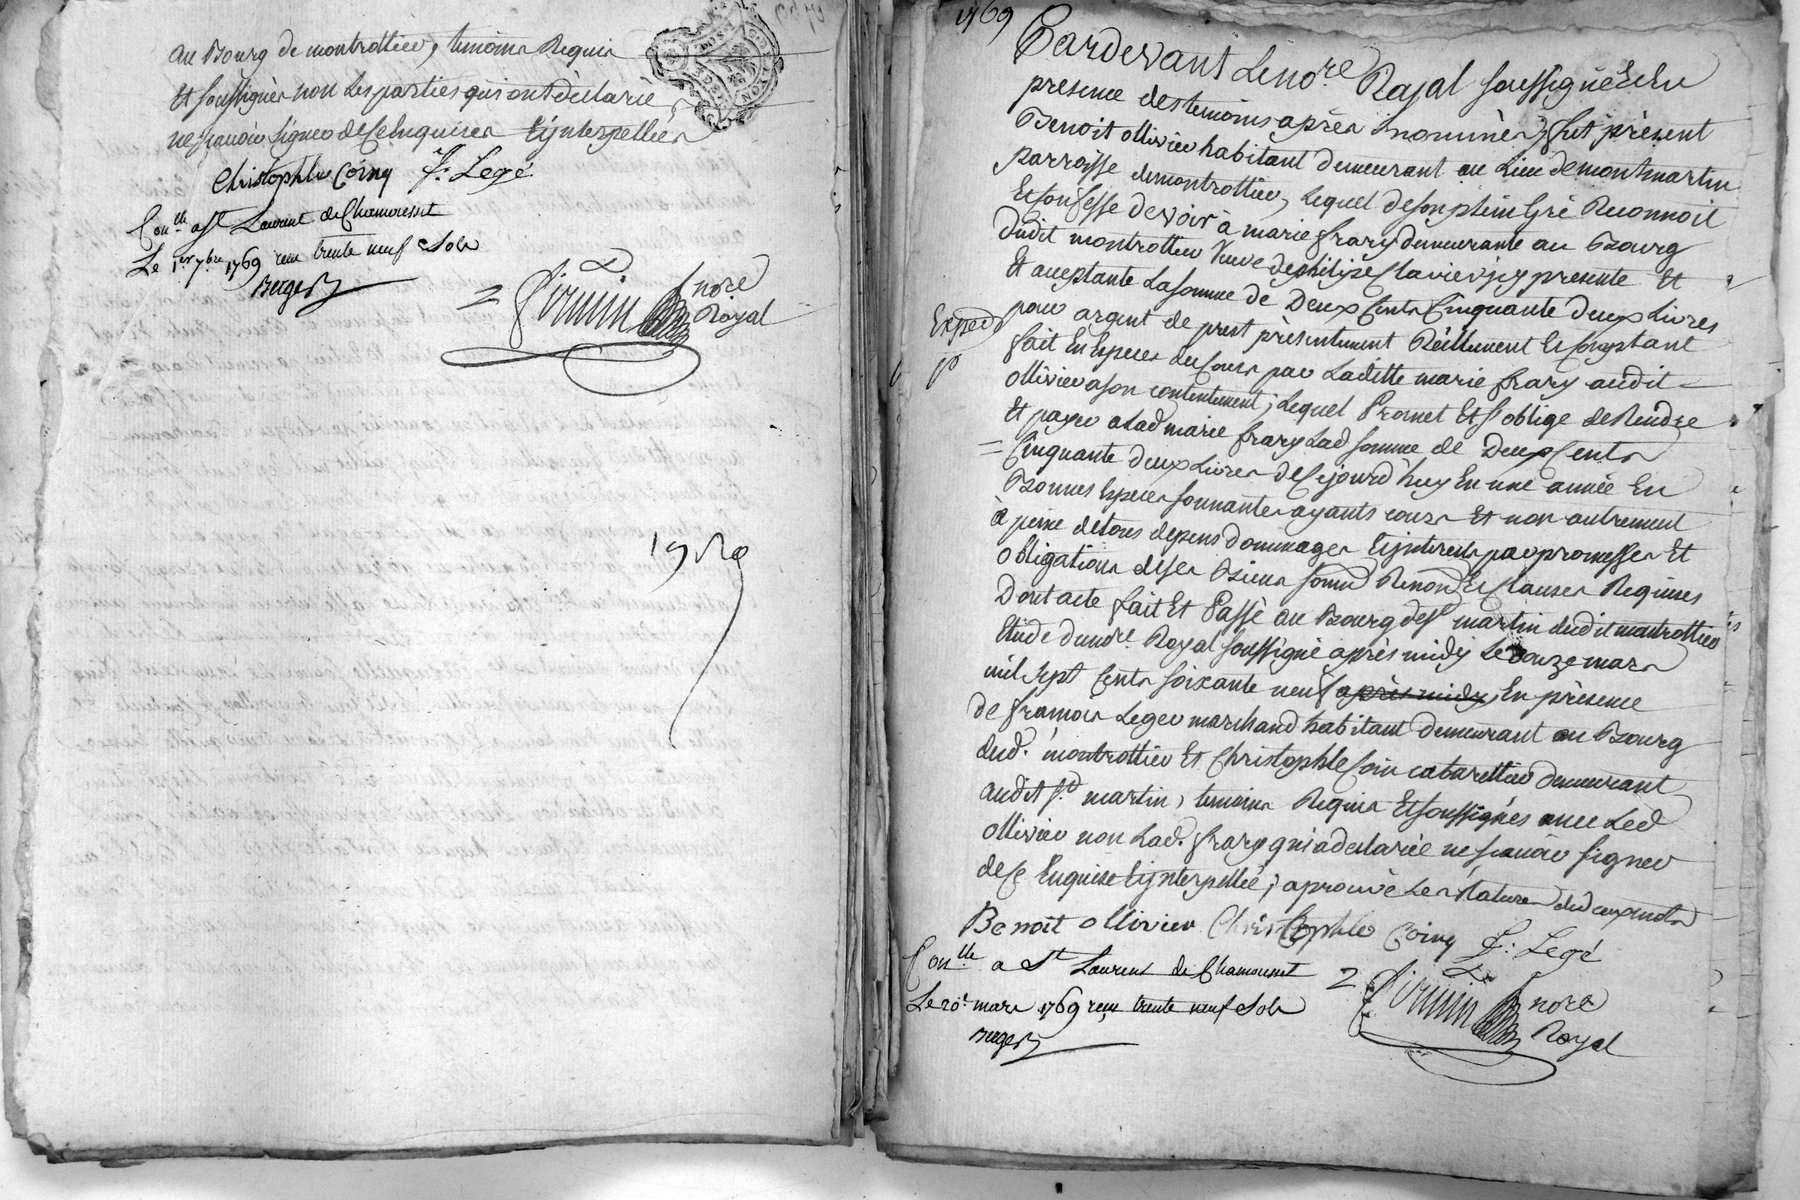 au Bourg de montrottier, temoins Requis
Et soussignés non Les parties qui ont déclaré
ne scavoir signer de ce Enquises Et jnterpellées
Christophle Coing F: Legé
Con.lle a St Laurent de Chamousset
Le 1.er 7.bre 1769 reçu trente neuf sols
Berger
Firmin nore
Royal
1769
Pardevant Le no.re Royal soussigné Et En
presence des temoins après nommés, fut présent
Benoit ollivier habitant demeurant au Lieu de montmartin
parroisse de montrottier, Lequel de son plein Gré Reconnoit
Et Confesse devoir à marie frary demeurante au Bourg
Dudit montrottier Veuve de Clavier jcy presente Et
Et acceptante La somme de Deux Cents Cinquante deux Livres
Exped.
pour argent de prest présentement Réellement Et Comptant
fait En Especes du Cours par Laditte marie frary audit
ollivier a son contentement; Lequel Promet Et s'oblige de Rendre
Et payer a Lad marie frary Lad somme de Deux Cents
Cinquante deux Livres de Cejourd'huy En une année En
Bonnes Especes sonnantes ayants cours Et non autrement
à peine de tous depens dommages Et jnterests par promesses Et
obligations de ses Biens soum Renon Et Clauses Requises
Dont acte fait Et Passé au Bourg de St martin dudit montrottier
Etude du no.re Royal soussigné après midy Le onze mars
mil sept Cents soixante neuf après midy, En présence
de francois Leger marchand habitant demeurant au Bourg
dud. montrottier Et Christophle Coin cabarettier demeurant
audit St. martin, temoins Requis Et soussignés avec Led
ollivier non Lad. frary qui a declarée ne scavoir signer
de Ce Enquise Et jnterpellée; aprouvé Les Ratures de deux mots
Benoit ollivier Christophle Coing F: Legé
Con.lle a St Laurent de Chamousset
Le 20.e mars 1769 reçu trente neuf sols
Berger
Firmin nore
Royal